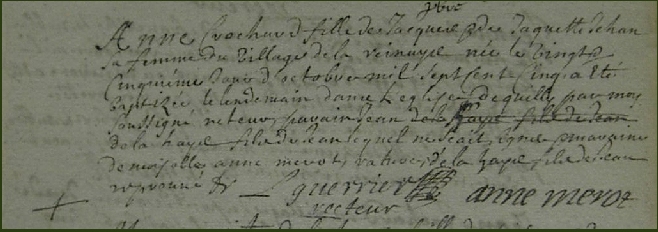 Anne Crochard fille de Jacques et de Jaquette Jehan
sa femme du village de la née le vingt
cinquième jour d'octobre mil sept sent cinq a été
baptizée le lendemain dans l'eglise de par moy
soussigné recteur, parain Jean de la haye fils de Jean
de la haye fils de Jean lequel ne scait signer maraine
demoiselle anne merot, rature de la haye fils de Jean
reprouvé
guerrier anne merot
recteur